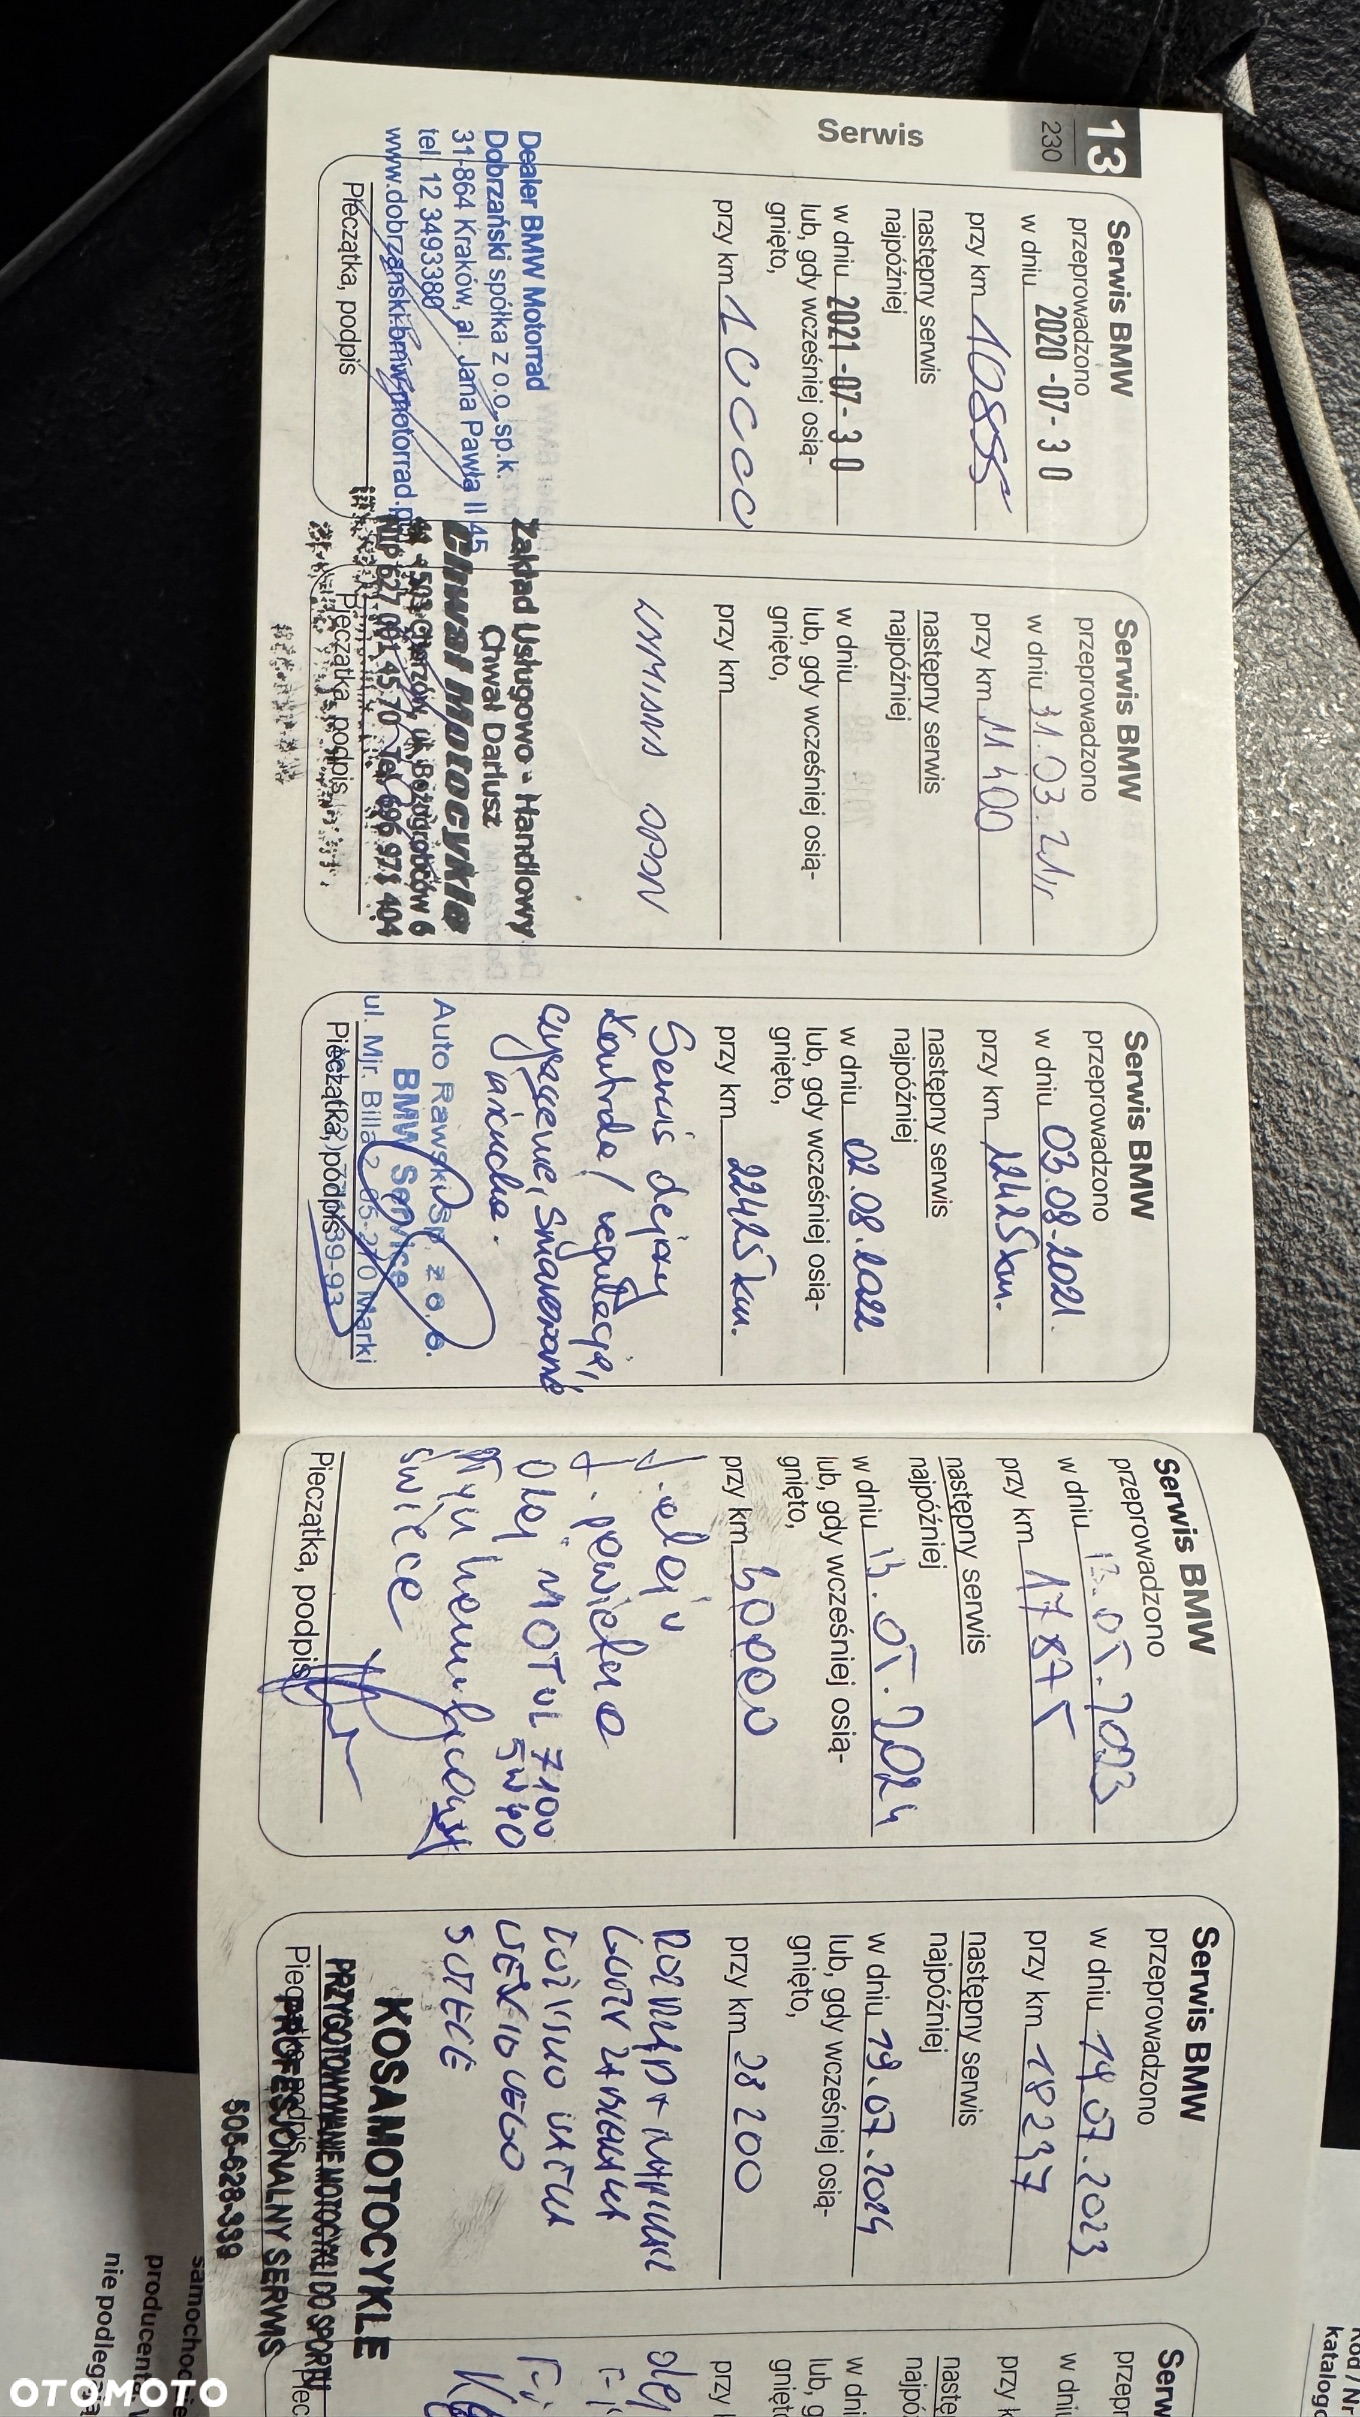 13
230
Serwis
Serwis BMW
przeprowadzono
w dniu 2020-07-30
przy km 10855
następny serwis
najpóźniej
w dniu 2021-07-30
lub, gdy wcześniej osią-
gnięto,
przy km 10000
Dealer BMW Motorrad
Dobrzański spółka z o.o. sp.k.
31-864 Kraków, al. Jana Pawła II 45
tel. 12 3493380
www.dobrzanski.bmw-motorrad.pl
Pieczątka, podpis
Serwis BMW
przeprowadzono
w dniu 31.03.21r
przy km 11400
następny serwis
najpóźniej
w dniu
lub, gdy wcześniej osią-
gnięto,
przy km
WYMIANA OPON
Zakład Usługowo - Handlowy
Chwał Dariusz
Chwał Motocykle
41-503 Chorzów, ul. Bożogrobców 6
NIP 627 001 45 70 Tel 696 974 404
Pieczątka, podpis
Serwis BMW
przeprowadzono
w dniu 03.08.2021.
przy km 12425 km.
następny serwis
najpóźniej
w dniu 02.08.2022
lub, gdy wcześniej osią-
gnięto,
przy km 22425 km.
Serwis olejowy
Kontrola / regulacja,
czyszczenie, smarowanie
łańcucha.
Auto Rawski Sp. z o.o.
BMW Service
ul. Mjr. Billa 2, 05-270 Marki
Pieczątka, podpis
Serwis BMW
przeprowadzono
w dniu 13.05.2023
przy km 17875
następny serwis
najpóźniej
w dniu 13.05.2024
lub, gdy wcześniej osią-
gnięto,
przy km 30000
f. oleju
f. powietrza
Olej MOTUL 7100
5W40
Płyn hamulcowy
świece
Pieczątka, podpis
Serwis BMW
przeprowadzono
w dniu 19.07.2023
przy km 18237
następny serwis
najpóźniej
w dniu 19.07.2024
lub, gdy wcześniej osią-
gnięto,
przy km 28200
ROZRZĄD +
KOSA MOTOCYKLE
PRZYGOTOWYWANIE MOTOCYKLI DO SPORTU
PROFESJONALNY SERWIS
505-628-339
Pieczątka, podpis
Serw
przepr
w dniu
przy k
nastę
najpó
w dni
lub, g
gnięt
przy
olej
Piec
samocho
producent
nie podlega
Kod / Nr
katalogo
OTOMOTO